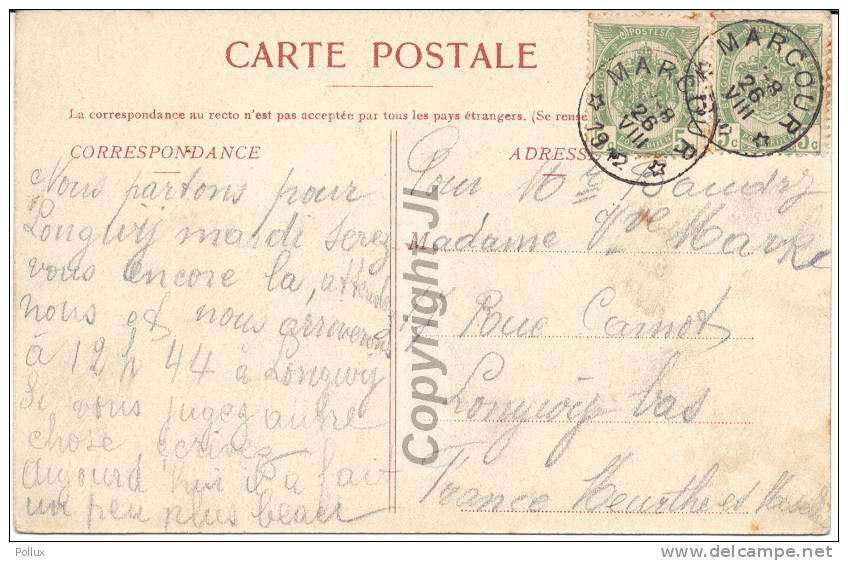 CARTE POSTALE
La correspondance au recto n'est pas acceptée par tous les pays étrangers. (Se rense
CORRESPONDANCE
Nous partons pour
Longwij mardi serez
vous encore la, attende
nous et nous arriverons
à 12 h 44 à Longwij
Si vous jugez autre
chose écrivez
Aujourd'hui il a fait
un peu plus beau
ADRESSE
Pour Mr Baudry
Madame Vve Marke
Rue Carnot
Longwij bas
France Meurthe et Mosel
POSTES
5c
5c
5c
MARCOUR
8
26
VIII
1912
MARCOUR
8
26
VIII
Copyright JL
Pollux
http://www.delcampe.net